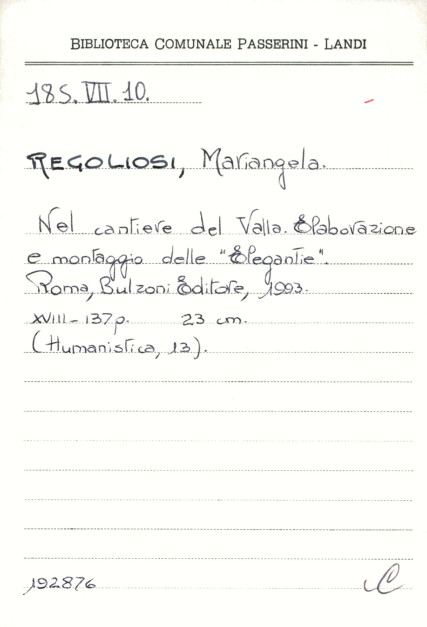 BIBLIOTECA COMUNALE PASSERINI - LANDI
185.VII.10.
REGOLIOSI, Mariangela.
Nel cantiere del Valla. Elaborazione
e montaggio delle "Elegantie".
Roma, Bulzoni Editore, 1993.
XVIII-137p. 23 cm.
(Humanistica, 13).
192876